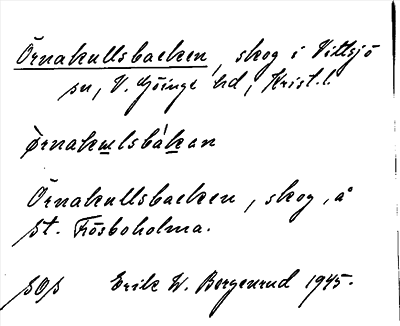 Örnakullsbacken, skog i Vittsjö
sn, V. Göinge hd, Krist. l.
ørnakulsbákan
Örnakullsbacken, skog, å
st. Frösboholma.
SOS Erik W. Borgenrud 1945.